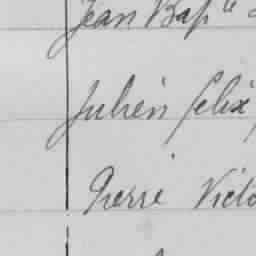 Jean Bap^te
Julien felix
Pierre Victo